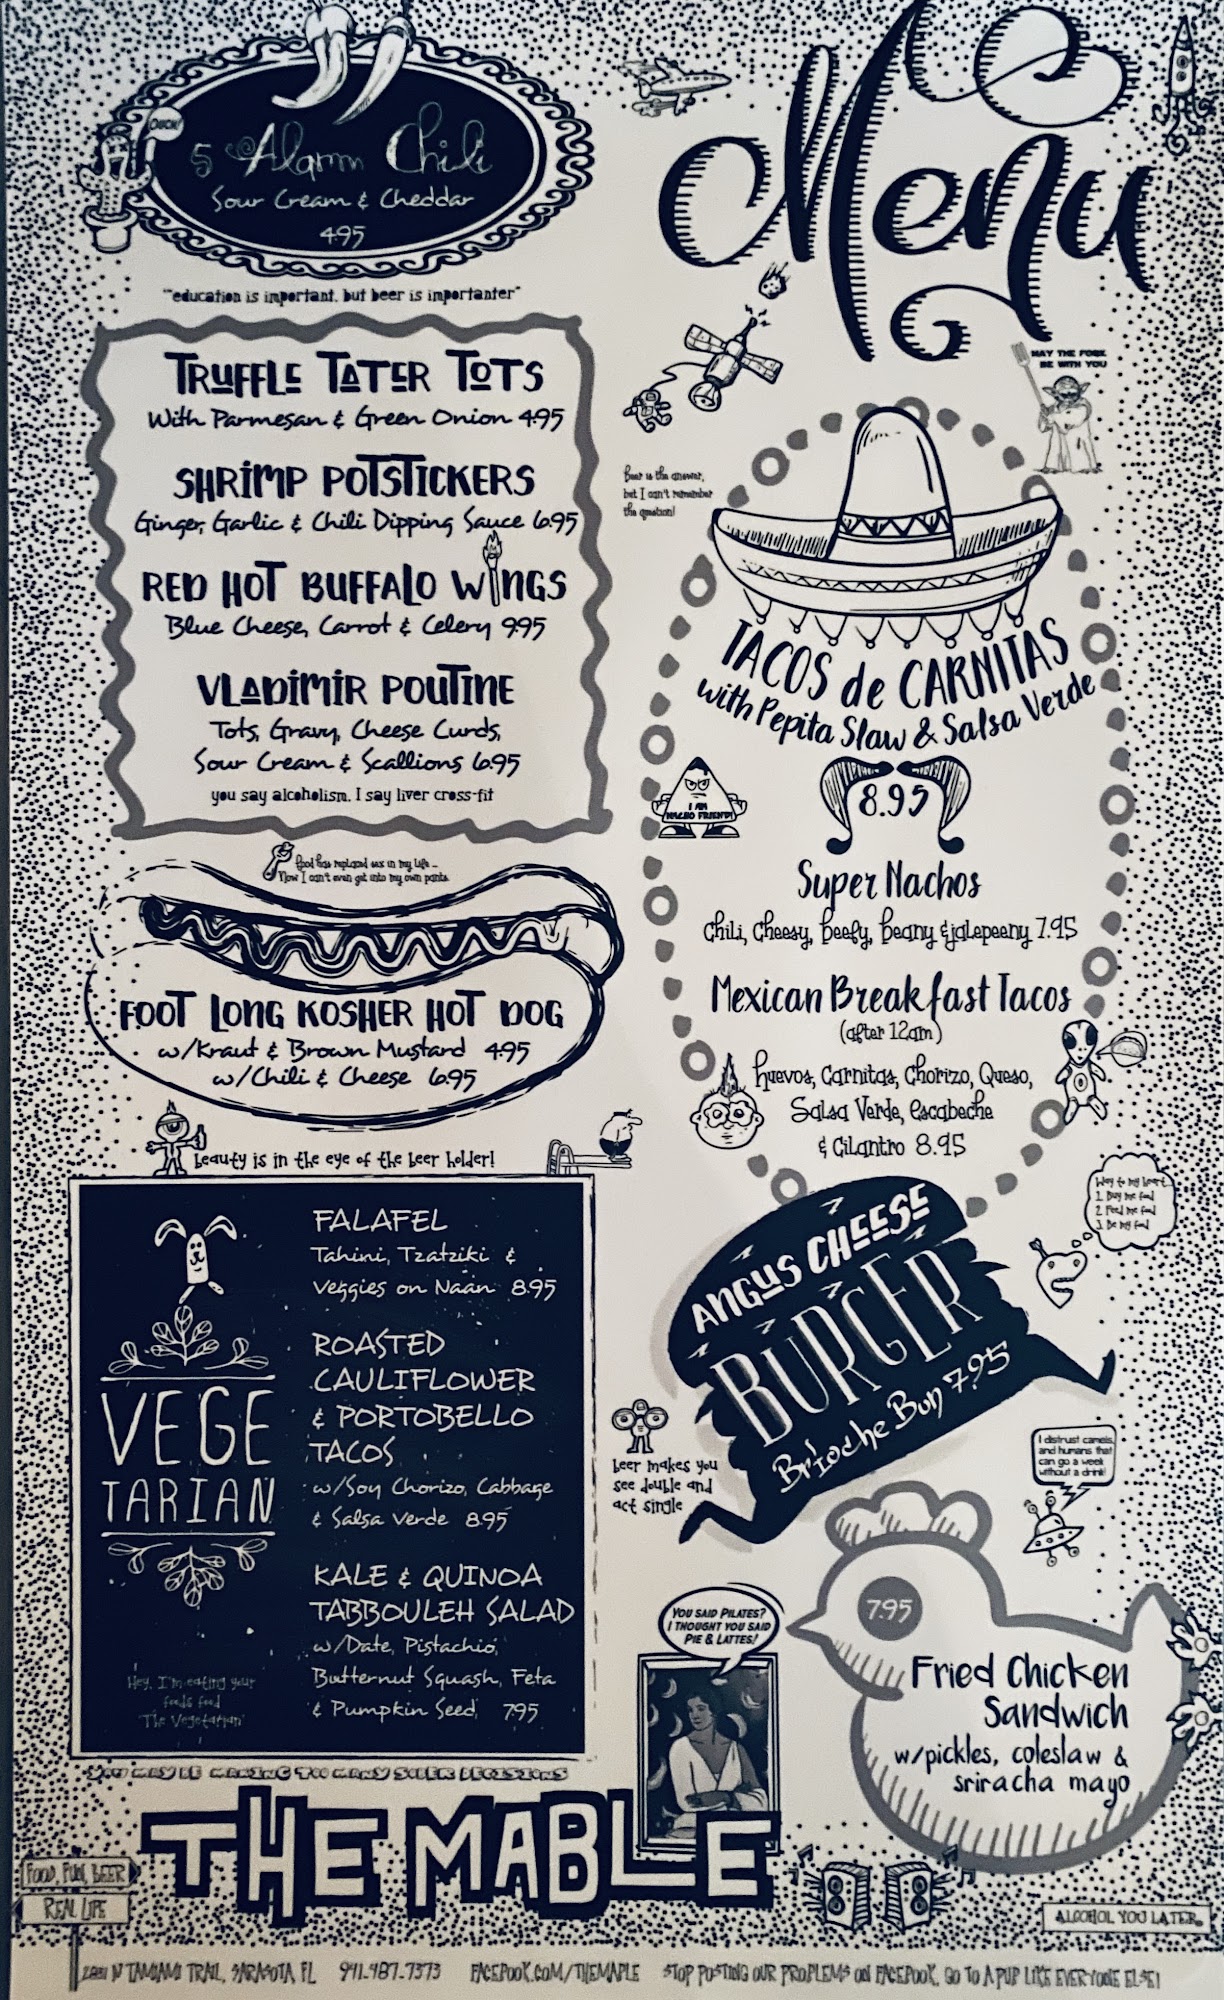 OUCH!
5 Alarm Chili
Sour Cream & Cheddar
4.95
"education is important, but beer is importanter"
Menu
MAY THE FORK
BE WITH YOU
TRUFFLE TATER TOTS
With Parmesan & Green Onion 4.95
SHRIMP POTSTICKERS
Ginger, Garlic & Chili Dipping Sauce 6.95
RED HOT BUFFALO WINGS
Blue Cheese, Carrot & Celery 9.95
VLADIMIR POUTINE
Tots, Gravy, Cheese Curds,
Sour Cream & Scallions 6.95
you say alcoholism, I say liver cross-fit
Beer is the answer,
but I can't remember
the question!
TACOS de CARNITAS
with Pepita Slaw & Salsa Verde
8.95
I AM
NACHO FRIEND!
Super Nachos
Chili, Cheesy, Beefy, Beany & jalepeeny 7.95
Mexican Breakfast Tacos
(after 12am)
Huevos, Carnitas, Chorizo, Queso,
Salsa Verde, Escabeche
& Cilantro 8.95
Food has replaced sex in my life...
Now I can't even get into my own pants.
FOOT LONG KOSHER HOT DOG
w/Kraut & Brown Mustard 4.95
w/Chili & Cheese 6.95
beauty is in the eye of the beer holder!
VEGE
TARIAN
FALAFEL
Tahini, Tzatziki &
Veggies on Naan 8.95
ROASTED
CAULIFLOWER
& PORTOBELLO
TACOS
w/Soy Chorizo, Cabbage
& Salsa Verde 8.95
KALE & QUINOA
TABBOULEH SALAD
w/Date, Pistachio,
Butternut Squash, Feta
& Pumpkin Seed, 7.95
Hey, I'm eating your
foods food
'The Vegetarian'
Way to my heart...
1. Buy me food
2. Feed me food
3. Be my food
ANGUS CHEESE
BURGER
Brioche Bun 7.95
beer makes you
see double and
act single
I distrust camels,
and humans that
can go a week
without a drink!
YOU SAID PILATES?
I THOUGHT YOU SAID
PIE & LATTES!
7.95
Fried Chicken
Sandwich
w/pickles, coleslaw &
sriracha mayo
YOU MAY BE MAKING TOO MANY SOBER DECISIONS
THE MABLE
FOOD, FUN, BEER
REAL LIFE
ALCOHOL YOU LATER.
N TAMIAMI TRAIL, SARASOTA, FL 941-487-7373 FACEBOOK.COM/THEMABLE STOP POSTING OUR PROBLEMS ON FACEBOOK, GO TO A PUB LIKE EVERYONE ELSE!